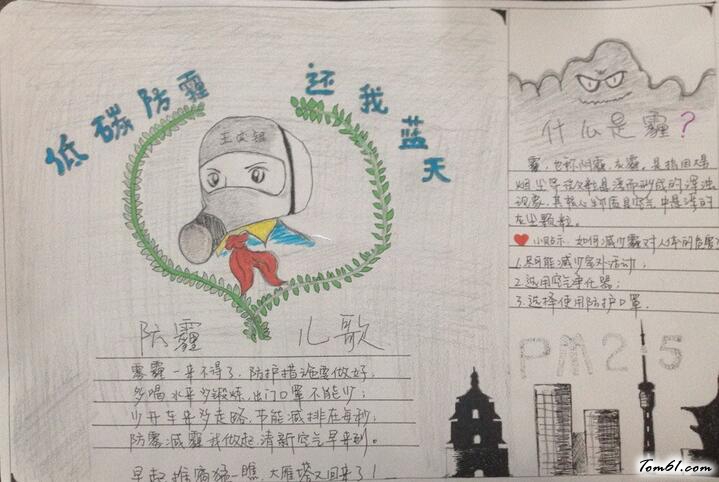 低碳防霾 还我蓝天
什么是霾?
霾,也称阴霾、灰霾,是指由大量
烟尘等微粒悬浮而形成的浑浊
现象。其核心物质是空气中悬浮的
灰尘颗粒。
小贴示:如何减少霾对人体的危害?
1.尽可能减少室外活动;
2.选用空气净化器;
3.选择使用防护口罩.
PM2.5
防霾 儿歌
雾霾一来不得了,防护措施要做好,
多喝水来多锻炼,出门口罩不能少;
少开车来多走路,节能减排在每秒;
防雾减霾我做起,清新空气早来到。
早起推窗一瞧,大雁塔又回来了!
Tom61.com